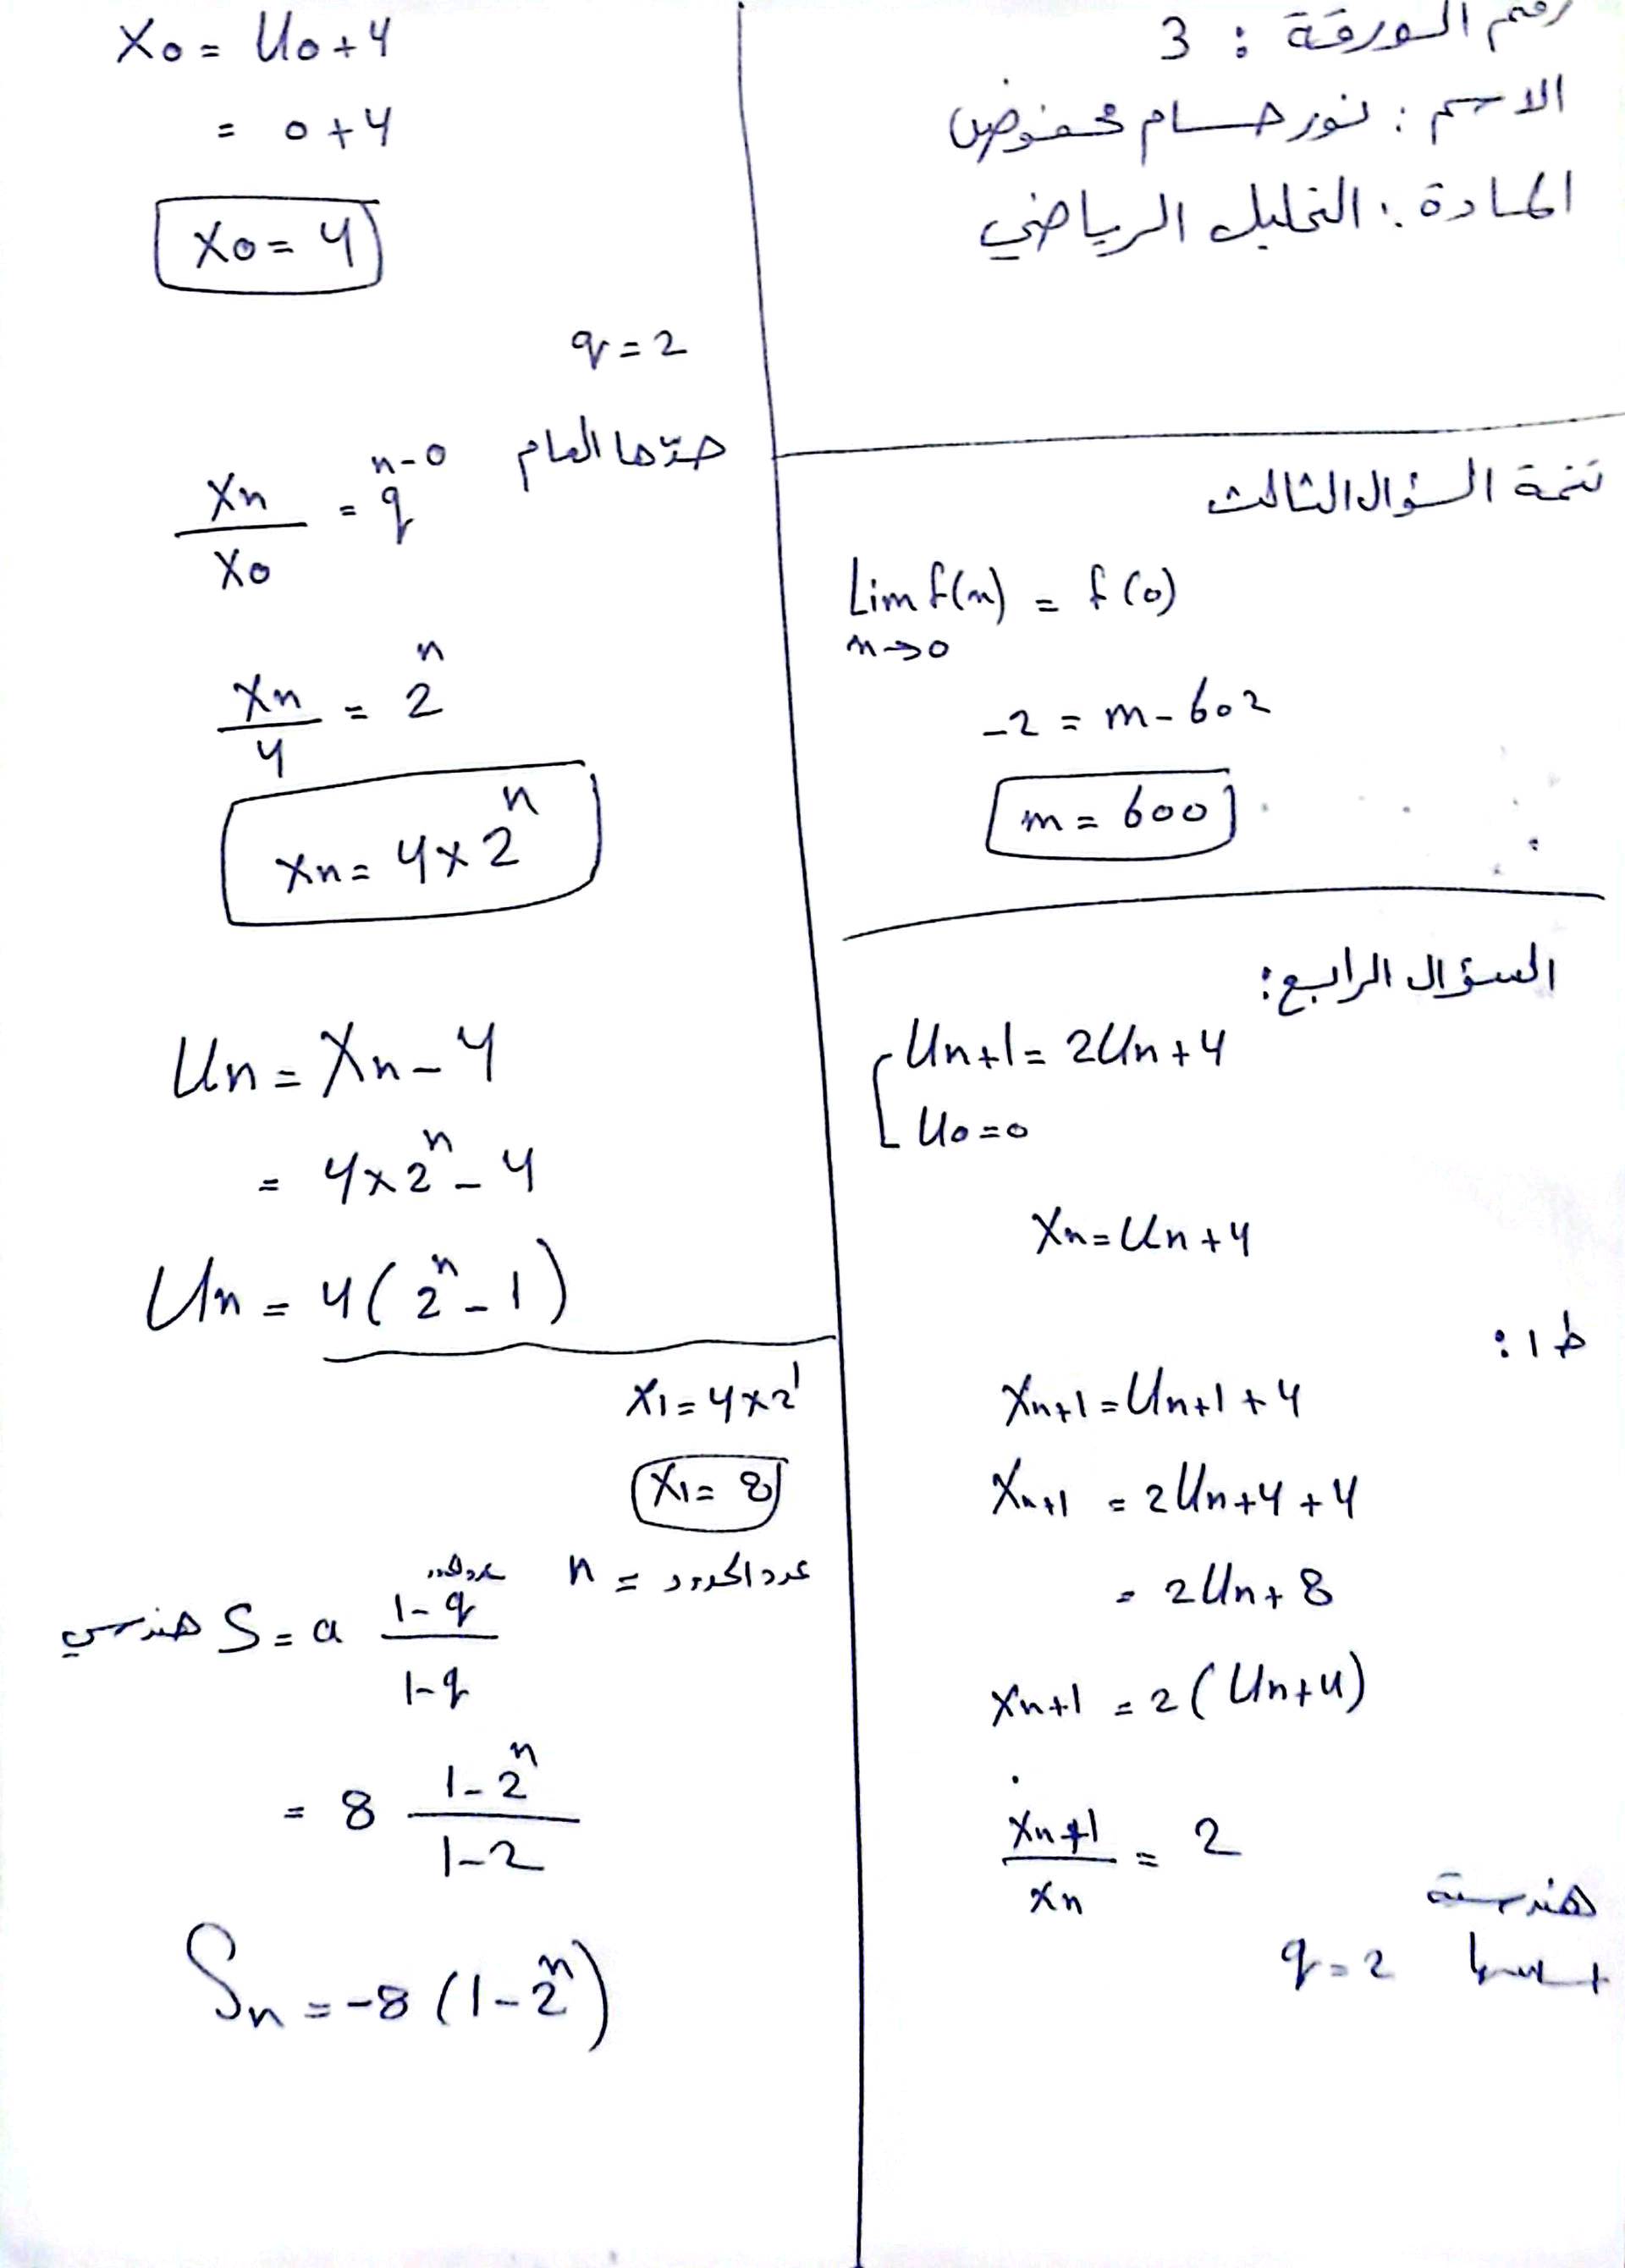 رقم الورقة : 3
الاسم : نور حسام محفوض
المادة : التحليل الرياضي
تتمة السؤال الثالث
Lim f(x) = f(0)
x→0
-2 = m - 602
m = 600
السؤال الرابع :
Un+1 = 2Un + 4
U0 = 0
Xn = Un + 4
ط1 :
Xn+1 = Un+1 + 4
Xn+1 = 2Un + 4 + 4
= 2Un + 8
Xn+1 = 2(Un+4)
Xn+1 / Xn = 2
هندسية
أساسها q = 2
X0 = U0 + 4
= 0 + 4
X0 = 4
q = 2
حدّها العام
Xn / X0 = q^n-0
Xn / 4 = 2^n
Xn = 4 × 2^n
Un = Xn - 4
= 4 × 2^n - 4
Un = 4(2^n - 1)
X1 = 4 × 2^1
X1 = 8
عدد الحدود = n
هندسي S = a (1 - q^عدد الحدود) / (1 - q)
= 8 (1 - 2^n) / (1 - 2)
Sn = -8 (1 - 2^n)